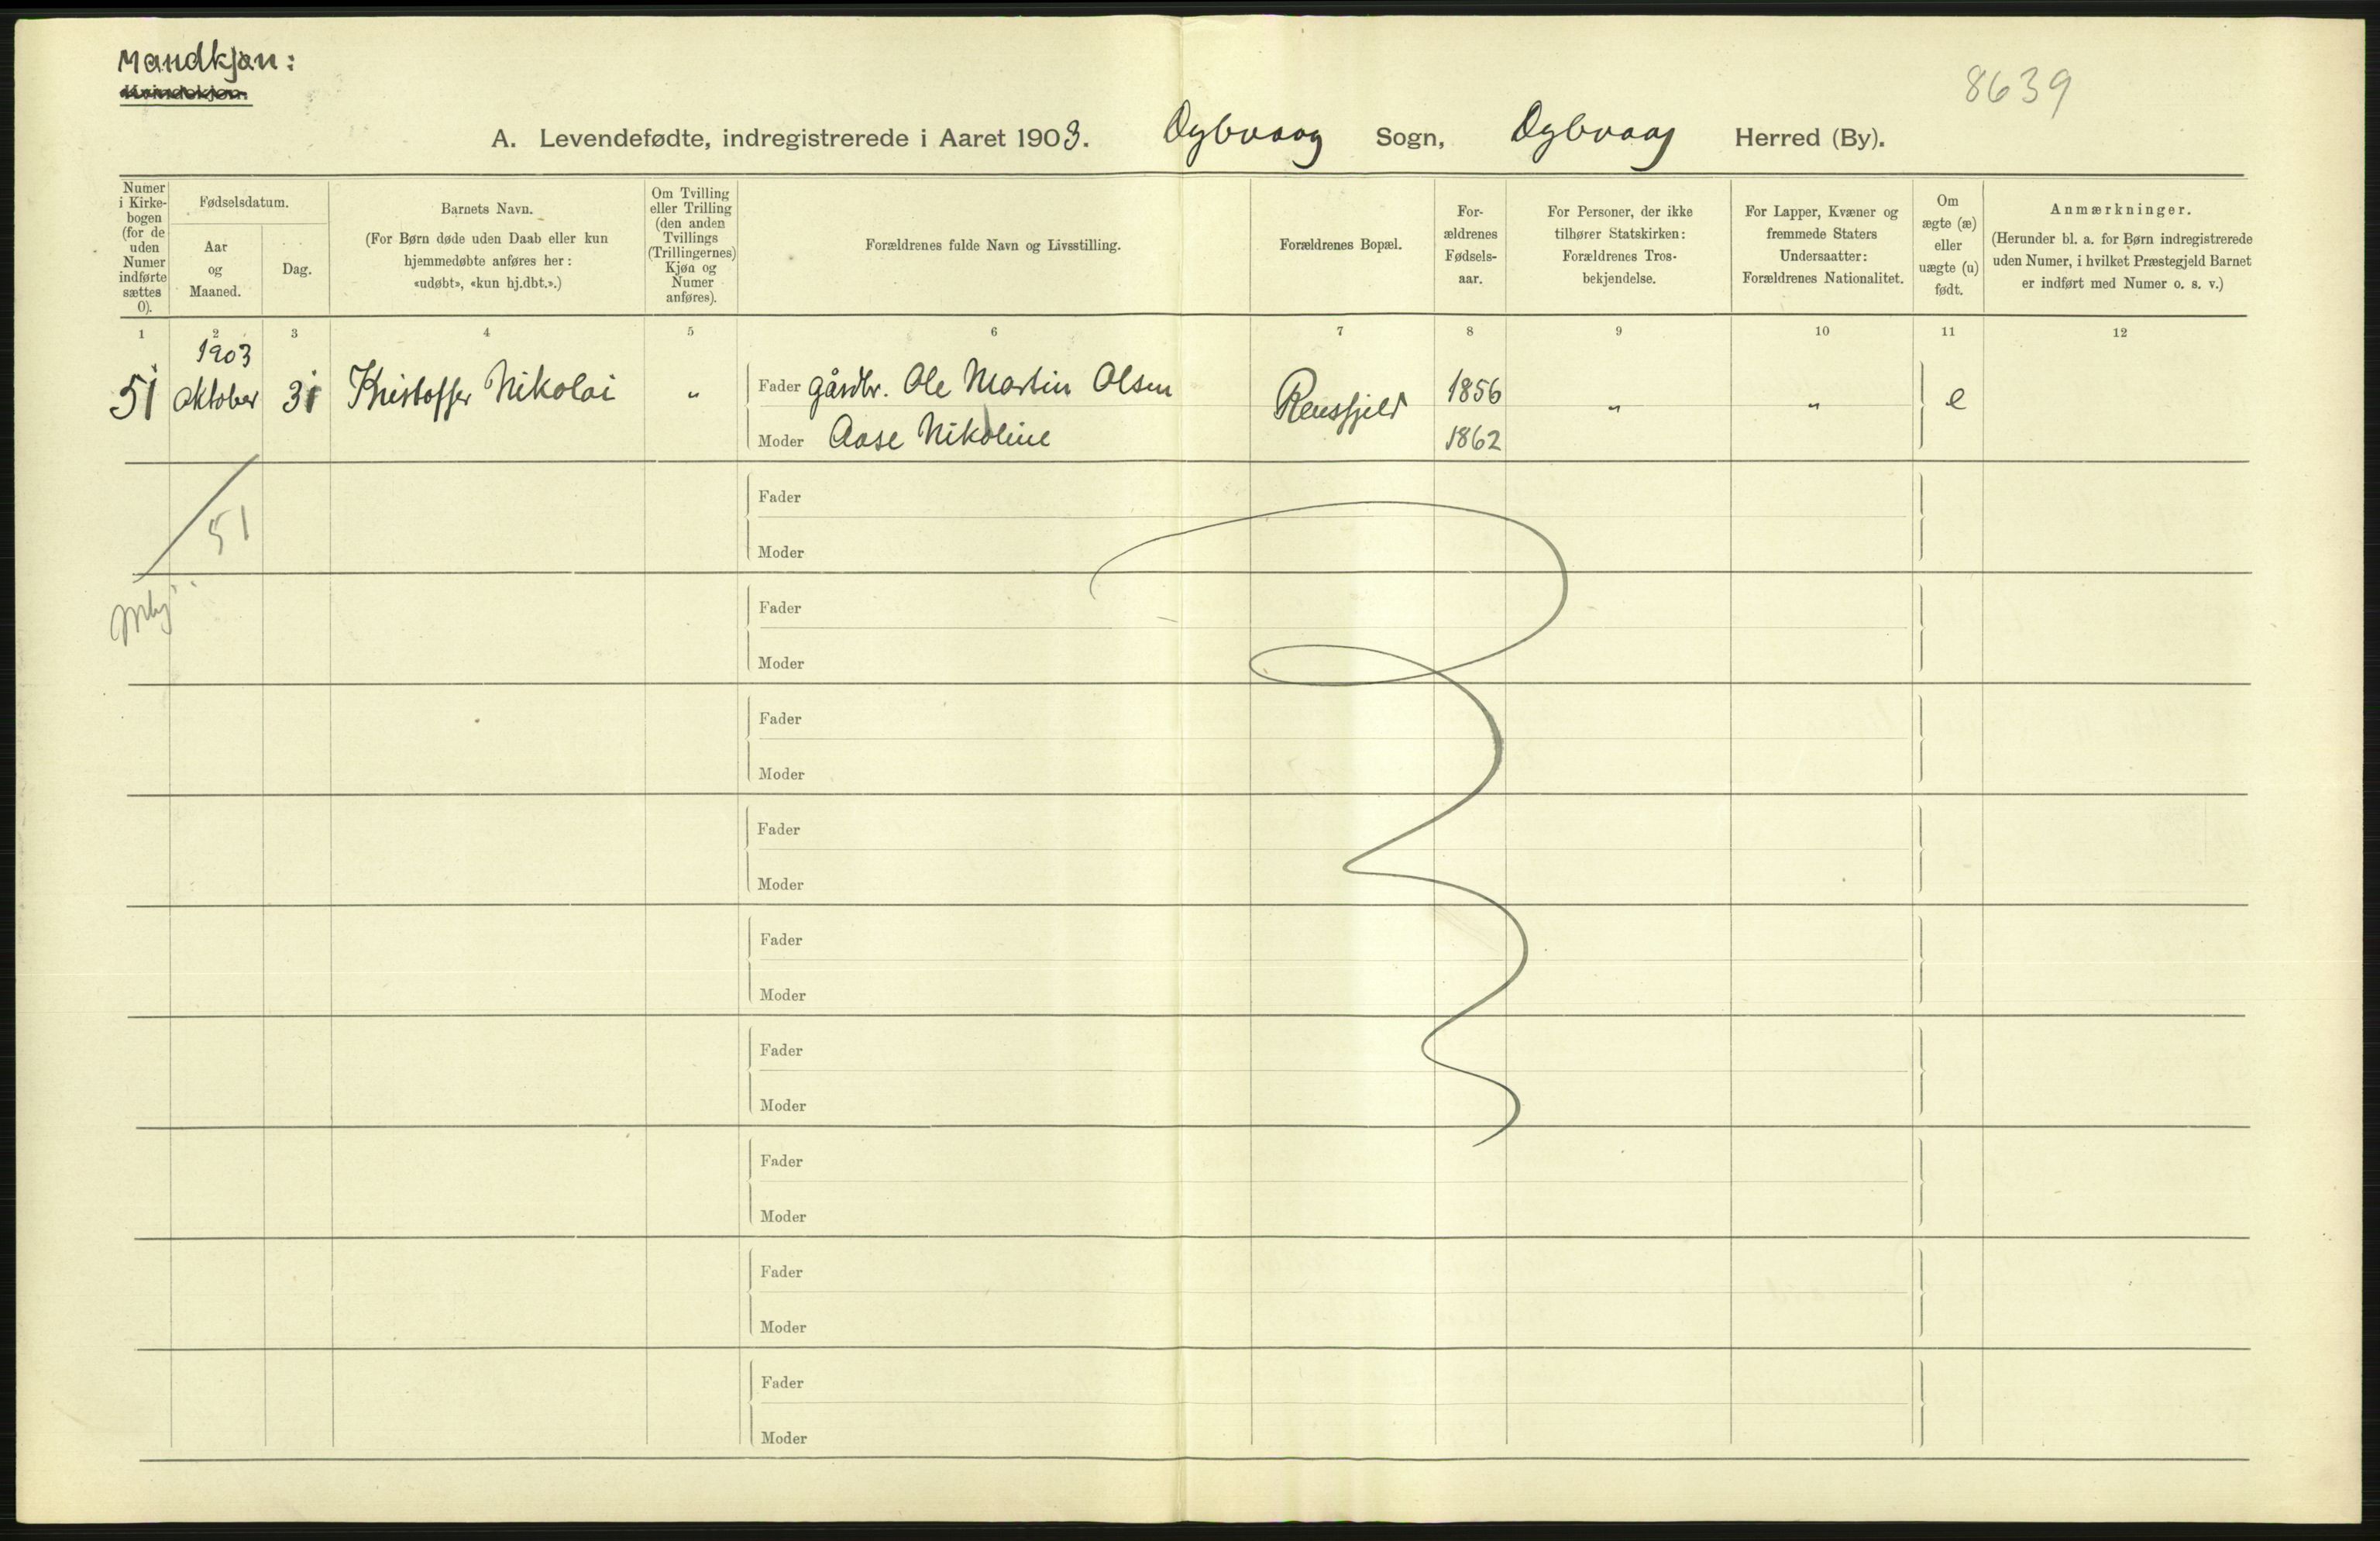 Mandkjøn:
Kvindekjøn
8639
A. Levendefødte, indregistrerede i Aaret 1903. Dybvaag Sogn, Dybvaag Herred (By).
Numer i Kirke-bogen (for de uden Numer indførte sættes 0).
Fødselsdatum.
Aar og Maaned.
Dag.
Barnets Navn.
(For Børn døde uden Daab eller kun
hjemmedøbte anføres her:
«udøbt», «kun hj.dbt.».)
Om Tvilling
eller Trilling
(den anden
Tvillings
(Trillingernes)
Kjøn og
Numer
anføres).
Forældrenes fulde Navn og Livsstilling.
Forældrenes Bopæl.
For-
ældrenes
Fødsels-
aar.
For Personer, der ikke
tilhører Statskirken:
Forældrenes Tros-
bekjendelse.
For Lapper, Kvæner og
fremmede Staters
Undersaatter:
Forældrenes Nationalitet.
Om
ægte (æ)
eller
uægte (u)
født.
Anmærkninger.
(Herunder bl. a. for Børn indregistrerede
uden Numer, i hvilket Præstegjeld Barnet
er indført med Numer o. s. v.)
1 2 3 4 5 6 7 8 9 10 11 12
1903
51 Oktober 31 Kristoffer Nikolai " Fader gårdbr. Ole Martin Olsen 1856 " " e
Moder Aase Nikoline 1862
Fader
51
Moder
Fader
Moder
Fader
Moder
Fader
Moder
Fader
Moder
Fader
Moder
Fader
Moder
Fader
Moder
Fader
Moder